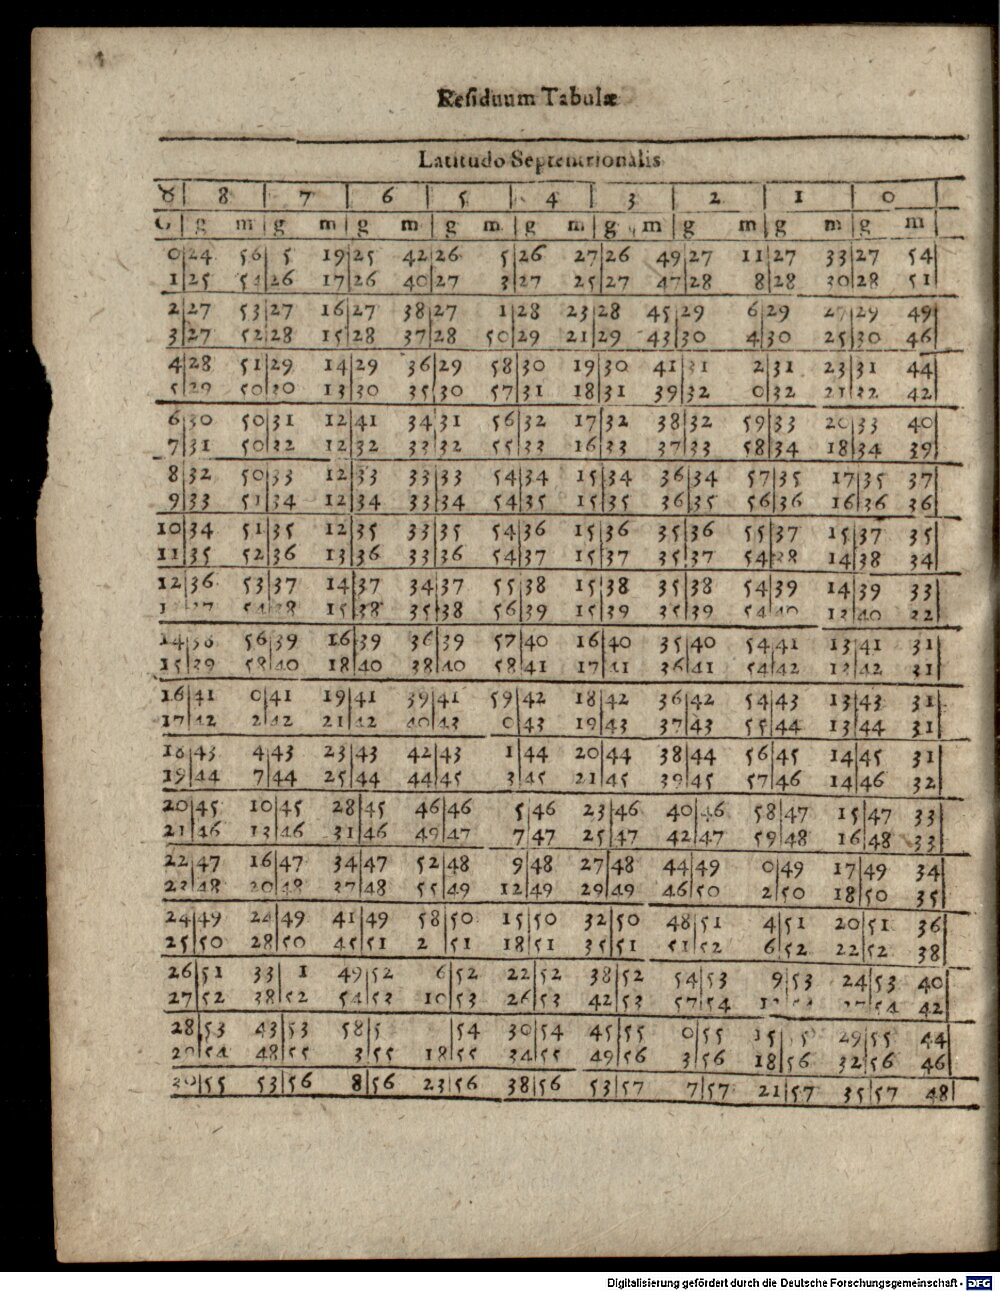 Residuum Tabulæ
Latitudo Septentrionalis
♉ | 8 | 7 | 6 | 5 | 4 | 3 | 2 | 1 | 0
G | g m | g m | g m | g m | g m | g m | g m | g m | g m
0 | 24 56 | 5 19 | 25 42 | 26 5 | 26 27 | 26 49 | 27 11 | 27 33 | 27 54
1 | 25 54 | 26 17 | 26 40 | 27 3 | 27 25 | 27 47 | 28 8 | 28 30 | 28 51
2 | 27 53 | 27 16 | 27 38 | 27 1 | 28 23 | 28 45 | 29 6 | 29 27 | 29 49
3 | 27 52 | 28 15 | 28 37 | 28 50 | 29 21 | 29 43 | 30 4 | 30 25 | 30 46
4 | 28 51 | 29 14 | 29 36 | 29 58 | 30 19 | 30 41 | 31 2 | 31 23 | 31 44
5 | 29 50 | 30 13 | 30 35 | 30 57 | 31 18 | 31 39 | 32 0 | 32 21 | 32 42
6 | 30 50 | 31 12 | 41 34 | 31 56 | 32 17 | 32 38 | 32 59 | 33 20 | 33 40
7 | 31 50 | 32 12 | 32 33 | 32 55 | 33 16 | 33 37 | 33 58 | 34 18 | 34 39
8 | 32 50 | 33 12 | 33 33 | 33 54 | 34 15 | 34 36 | 34 57 | 35 17 | 35 37
9 | 33 51 | 34 12 | 34 33 | 34 54 | 35 15 | 35 36 | 35 56 | 36 16 | 36 36
10 | 34 51 | 35 12 | 35 33 | 35 54 | 36 15 | 36 35 | 36 55 | 37 15 | 37 35
11 | 35 52 | 36 13 | 36 33 | 36 54 | 37 15 | 37 35 | 37 54 | 38 14 | 38 34
12 | 36 53 | 37 14 | 37 34 | 37 55 | 38 15 | 38 35 | 38 54 | 39 14 | 39 33
1 | 37 54 | 38 15 | 38 35 | 38 56 | 39 15 | 39 35 | 39 54 | 40 13 | 40 32
14 | 38 56 | 39 16 | 39 36 | 39 57 | 40 16 | 40 35 | 40 54 | 41 13 | 41 31
15 | 39 58 | 40 18 | 40 38 | 40 58 | 41 17 | 41 36 | 41 54 | 42 13 | 42 31
16 | 41 0 | 41 19 | 41 39 | 41 59 | 42 18 | 42 36 | 42 54 | 43 13 | 43 31
17 | 42 2 | 42 21 | 42 40 | 43 0 | 43 19 | 43 37 | 43 55 | 44 13 | 44 31
18 | 43 4 | 43 23 | 43 42 | 43 1 | 44 20 | 44 38 | 44 56 | 45 14 | 45 31
19 | 44 7 | 44 25 | 44 44 | 45 3 | 45 21 | 45 39 | 45 57 | 46 14 | 46 32
20 | 45 10 | 45 28 | 45 46 | 46 5 | 46 23 | 46 40 | 46 58 | 47 15 | 47 33
21 | 46 13 | 46 31 | 46 49 | 47 7 | 47 25 | 47 42 | 47 59 | 48 16 | 48 33
22 | 47 16 | 47 34 | 47 52 | 48 9 | 48 27 | 48 44 | 49 0 | 49 17 | 49 34
23 | 48 20 | 48 37 | 48 55 | 49 12 | 49 29 | 49 46 | 50 2 | 50 18 | 50 35
24 | 49 24 | 49 41 | 49 58 | 50 15 | 50 32 | 50 48 | 51 4 | 51 20 | 51 36
25 | 50 28 | 50 45 | 51 2 | 51 18 | 51 35 | 51 51 | 52 6 | 52 22 | 52 38
26 | 51 33 | 1 49 | 52 6 | 52 22 | 52 38 | 52 54 | 53 9 | 53 24 | 53 40
27 | 52 38 | 52 54 | 53 10 | 53 26 | 53 42 | 53 57 | 54 12 | 54 27 | 54 42
28 | 53 43 | 53 58 | 5 | 54 30 | 54 45 | 55 0 | 55 15 | 5 29 | 55 44
29 | 54 48 | 55 3 | 55 18 | 55 34 | 55 49 | 56 3 | 56 18 | 56 32 | 56 46
30 | 55 53 | 56 8 | 56 23 | 56 38 | 56 53 | 57 7 | 57 21 | 57 35 | 57 48
Digitalisierung gefördert durch die Deutsche Forschungsgemeinschaft - DFG